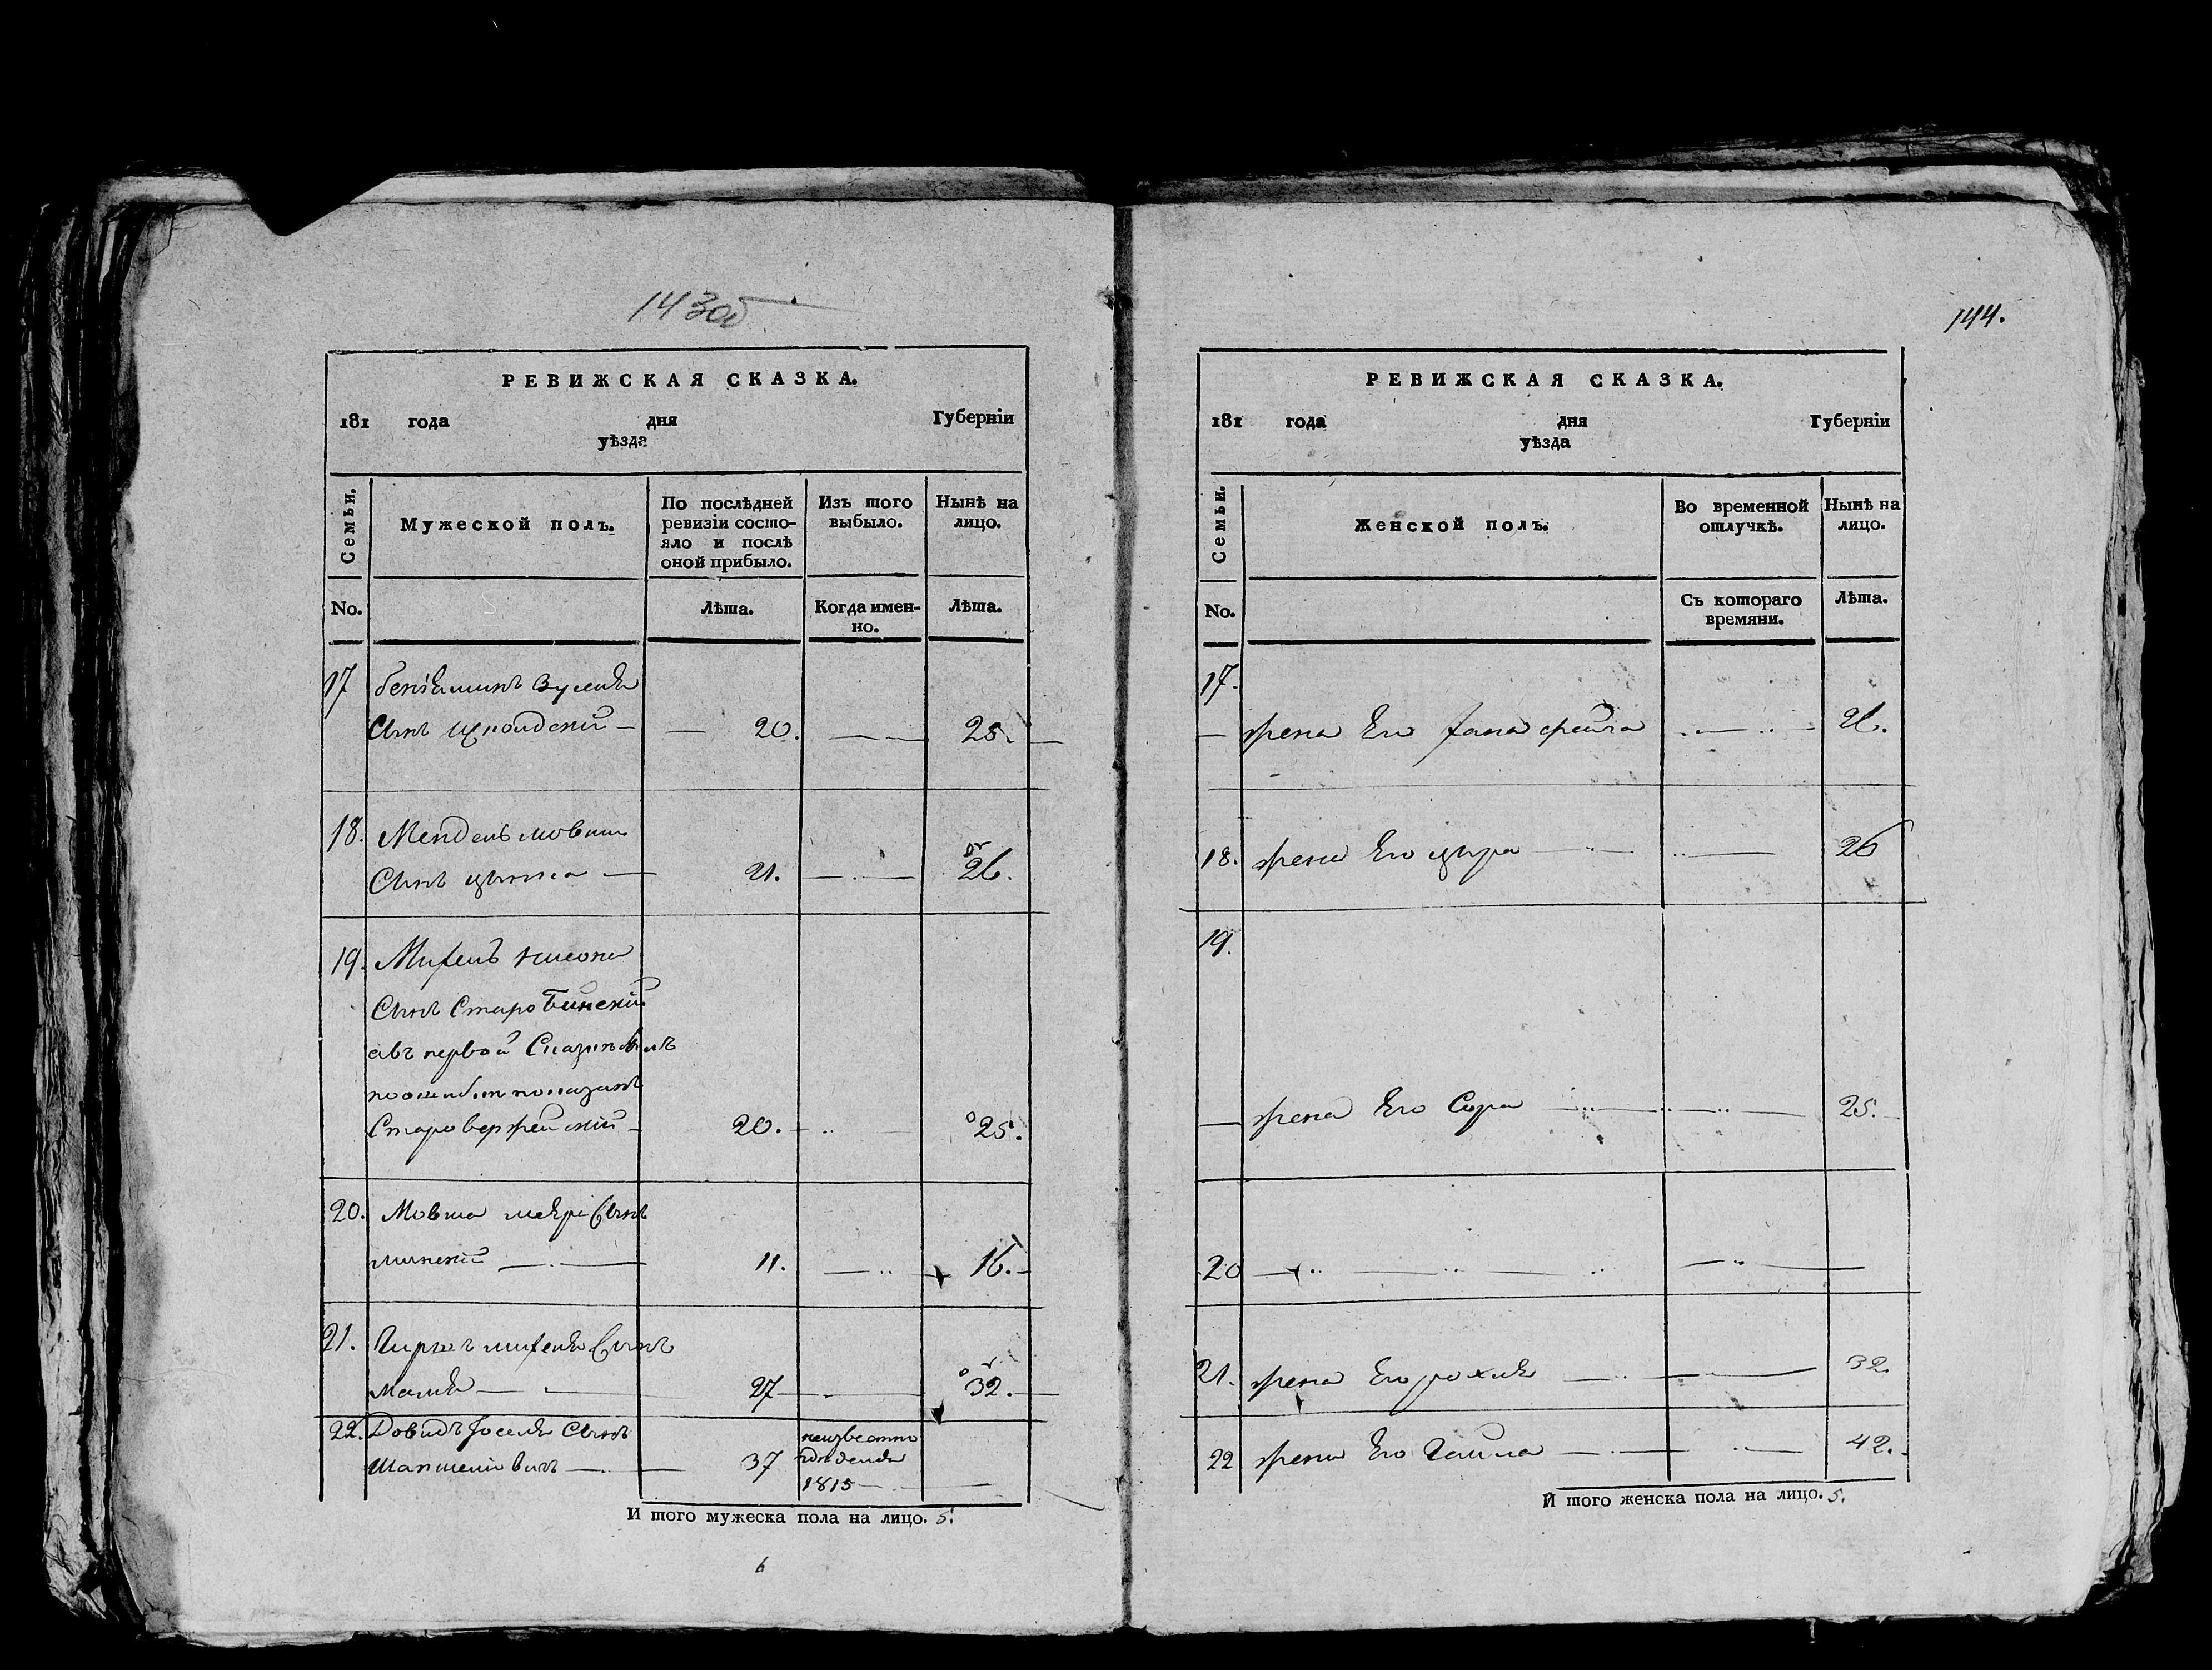 143об
РЕВИЖСКАЯ СКАЗКА.
181 года дня Губерніи
уѣзда
Семьи.
Мужеской полъ.
По послѣдней ревизіи состо-
яло и послѣ оной прибыло.
Изъ того выбыло.
Нынѣ на лицо.
No.
Лѣта.
Когда имен-
но.
Лѣта.
17 Беніаминъ
Сынъ 20. 25.
18. Мендель Мовши
Сынъ 21. 26.
19. Михель
Сынъ Старобинскій
авъ первой
по ошибкѣ показанъ
20. 25.
20. Мовша Сынъ
минскій 11. 16.
21. Гиршъ Михеля Сынъ
27 32.
22. Довидъ Іоселя Сынъ
37 неизвестно
1815
И того мужеска пола на лицо. 5.
6
144.
РЕВИЖСКАЯ СКАЗКА.
181 года дня Губерніи
уѣзда
Семьи.
Женской полъ.
Во временной отлучкѣ.
Нынѣ на лицо.
No.
Съ котораго времяни.
Лѣта.
17.
жена Его Хана фейга 26.
18. жена Его 26
19.
жена Его Сора 25.
20
21. жена Его рохля 32.
22 жена Его 42.
И того женска пола на лицо. 5.